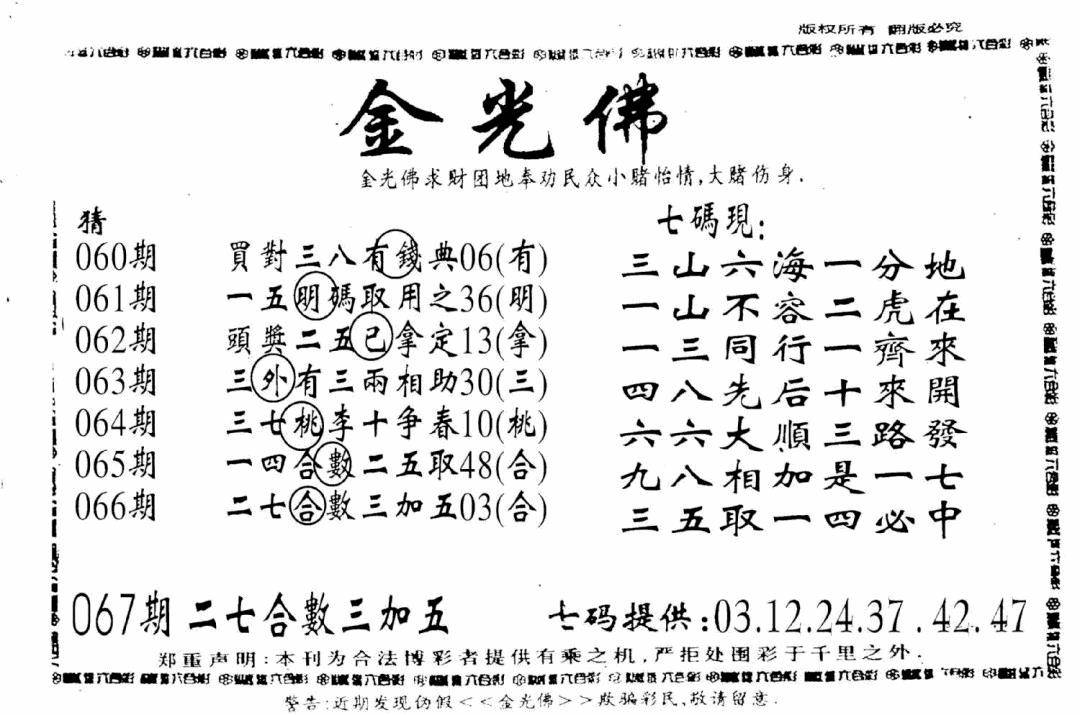 版权所有 翻版必究
金光佛
金光佛求财团地奉劝民众小赌怡情,大赌伤身.
猜
060期 買對三八有錢典06(有)
061期 一五明碼取用之36(明)
062期 頭獎二五已拿定13(拿)
063期 三外有三兩相助30(三)
064期 三七桃李十争春10(桃)
065期 一四合數二五取48(合)
066期 二七合數三加五03(合)
七碼現:
三山六海一分地
一山不容二虎在
一三同行一齊來
四八先后十來開
六六大順三路發
九八相加是一七
三五取一四必中
067期 二七合數三加五 七码提供:03.12.24.37.42.47
郑重声明:本刊为合法博彩者提供有乘之机,严拒处围彩于千里之外.
警告:近期发现伪假<<金光佛>>欺骗彩民,敬请留意.